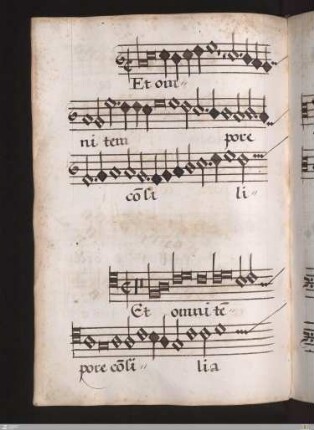 Et om-
ni tem pore
cōsi li-
Et omni tē-
pore cōsi- lia